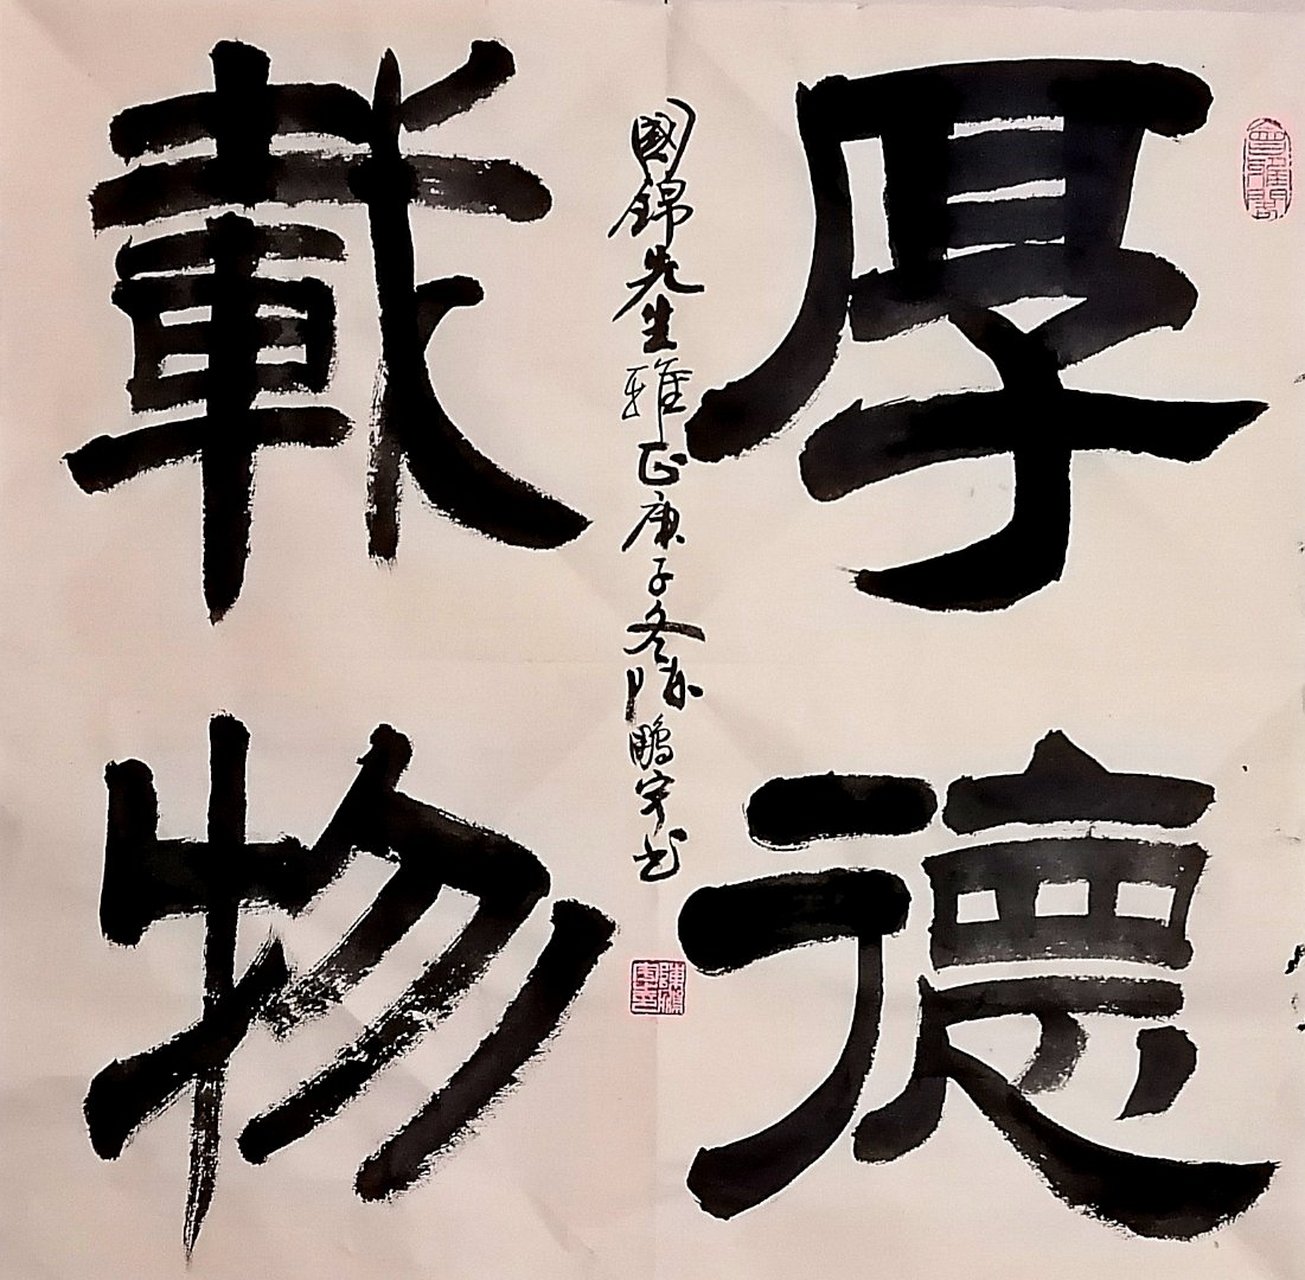 厚德
載物
國錦先生雅正庚子冬陳鵬宇书